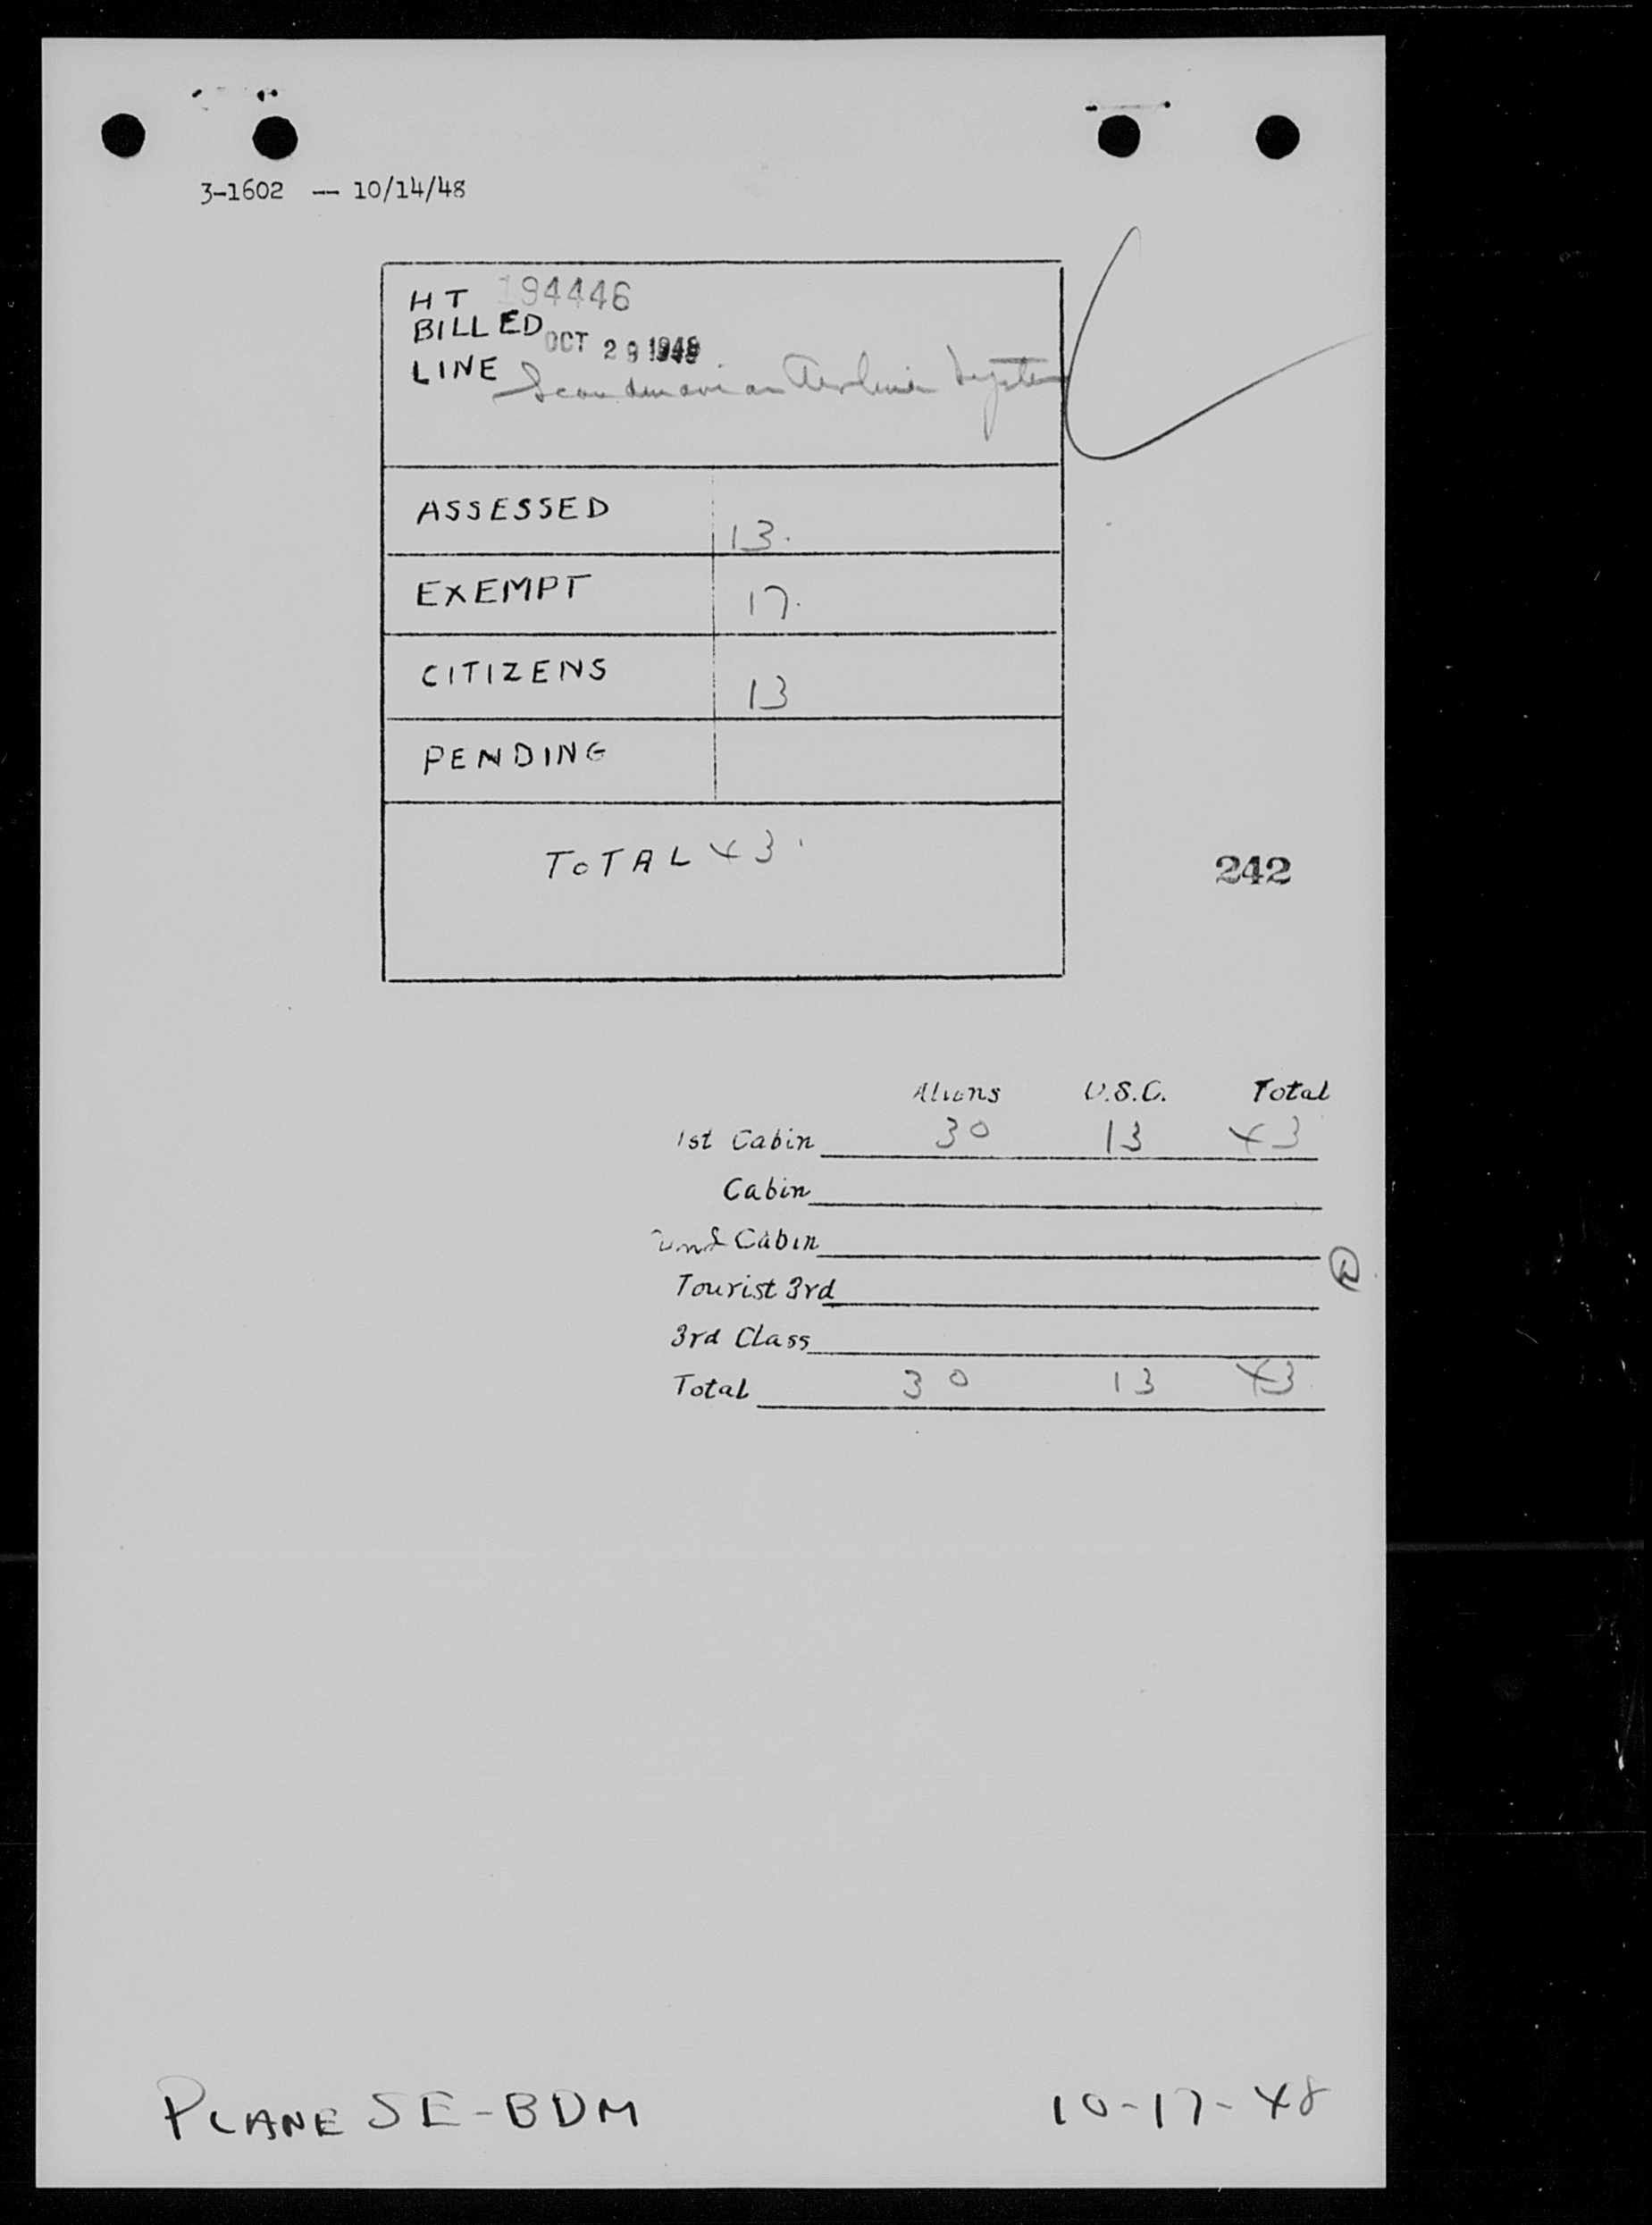 3-1602 -- 10/14/48
HT 194446
BILLED OCT 29 1948
LINE Scandinavian Airlines System
ASSESSED 13.
EXEMPT 17.
CITIZENS 13
PENDING
TOTAL 43.
242
Aliens U.S.C. Total
1st Cabin 30 13 43
Cabin
2nd Cabin
Tourist 3rd
3rd Class
Total 30 13 43
PLANE SE-BDM 10-17-48